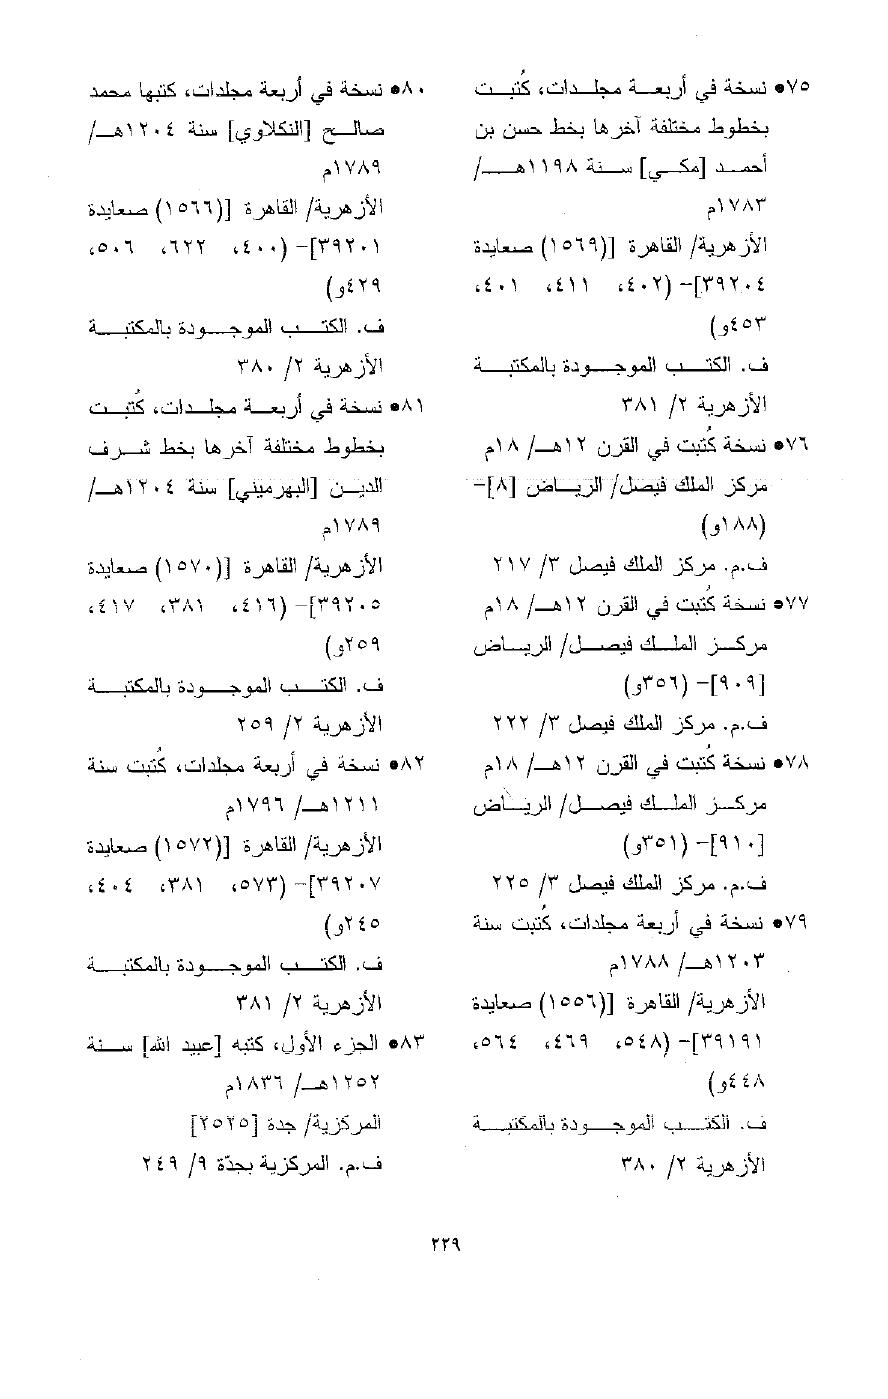 ٧٥• نسخة في أربعة مجلدات، كُتبت
بخطوط مختلفة آخرها بخط حسن بن
أحمد [مكي] سنة ١١٩٨هـ/
١٧٨٣م
الأزهرية/ القاهرة [(١٥٦٩) صعايدة
٣٩٢٠٤]- (٤٠٢، ٤١١، ٤٠١،
٤٥٣و)
ف. الكتب الموجودة بالمكتبة
الأزهرية ٢/ ٣٨١
٧٦• نسخة كُتبت في القرن ١٢هـ/ ١٨م
مركز الملك فيصل/ الرياض [٨]-
(١٨٨و)
ف.م. مركز الملك فيصل ٣/ ٢١٧
٧٧• نسخة كُتبت في القرن ١٢هـ/ ١٨م
مركز الملك فيصل/ الرياض
[٩٠٩]- (٣٥٦و)
ف.م. مركز الملك فيصل ٣/ ٢٢٢
٧٨• نسخة كُتبت في القرن ١٢هـ/ ١٨م
مركز الملك فيصل/ الرياض
[٩١٠]- (٣٥١و)
ف.م. مركز الملك فيصل ٣/ ٢٢٥
٧٩• نسخة في أربعة مجلدات، كُتبت سنة
١٢٠٣هـ/ ١٧٨٨م
الأزهرية/ القاهرة [(١٥٥٦) صعايدة
٣٩١٩١]- (٥٤٨، ٤٦٩، ٥٦٤،
٤٤٨و)
ف. الكتب الموجودة بالمكتبة
الأزهرية ٢/ ٣٨٠
٨٠• نسخة في أربعة مجلدات، كتبها محمد
صالح [النكلاوي] سنة ١٢٠٤هـ/
١٧٨٩م
الأزهرية/ القاهرة [(١٥٦٦) صعايدة
٣٩٢٠١]- (٤٠٠، ٦٢٢، ٥٠٦،
٤٢٩و)
ف. الكتب الموجودة بالمكتبة
الأزهرية ٢/ ٣٨٠
٨١• نسخة في أربعة مجلدات، كُتبت
بخطوط مختلفة آخرها بخط شرف
الدين [البهرميني] سنة ١٢٠٤هـ/
١٧٨٩م
الأزهرية/ القاهرة [(١٥٧٠) صعايدة
٣٩٢٠٥]- (٤١٦، ٣٨١، ٤١٧،
٢٥٩و)
ف. الكتب الموجودة بالمكتبة
الأزهرية ٢/ ٢٥٩
٨٢• نسخة في أربعة مجلدات، كُتبت سنة
١٢١١هـ/ ١٧٩٦م
الأزهرية/ القاهرة [(١٥٧٢) صعايدة
٣٩٢٠٧]- (٥٧٣، ٣٨١، ٤٠٤،
٢٤٥و)
ف. الكتب الموجودة بالمكتبة
الأزهرية ٢/ ٣٨١
٨٣• الجزء الأول، كتبه [عبيد الله] سنة
١٢٥٢هـ/ ١٨٣٦م
المركزية/ جدة [٢٥٢٥]
ف.م. المركزية بجدّة ٩/ ٢٤٩
٢٢٩